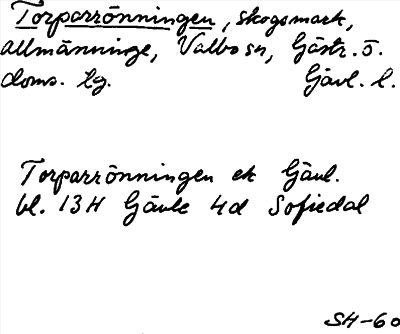 Torparrönningen, skogsmark,
allmänninge, Valbo sn, Gästr. ö.
doms. lg. Gävl. l.
Torparrönningen ek Gävl.
bl. 13H Gävle 4d Sofiedal
SH-60